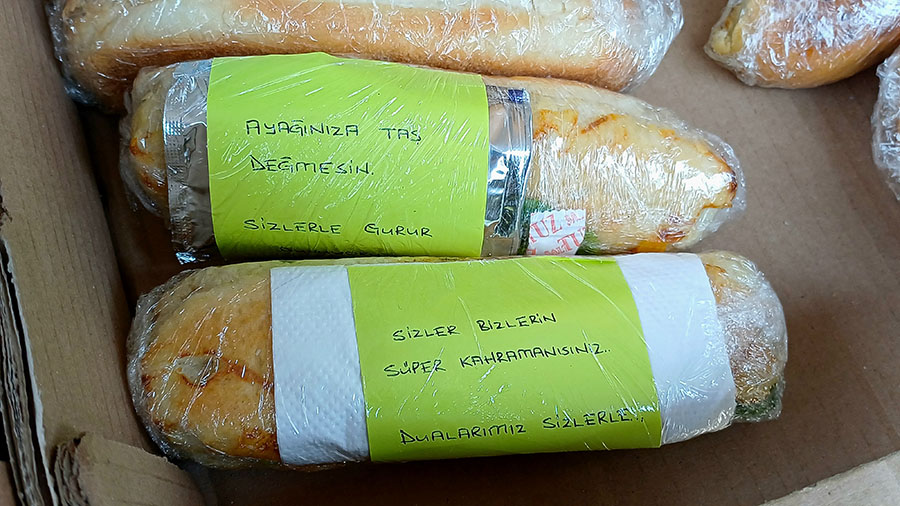 AYAĞINIZA TAŞ
DEĞMESİN.
SİZLERLE GURUR
TUZ
SİZLER BİZLERİN
SÜPER KAHRAMANISINIZ..
DUALARIMIZ SİZLERLE...